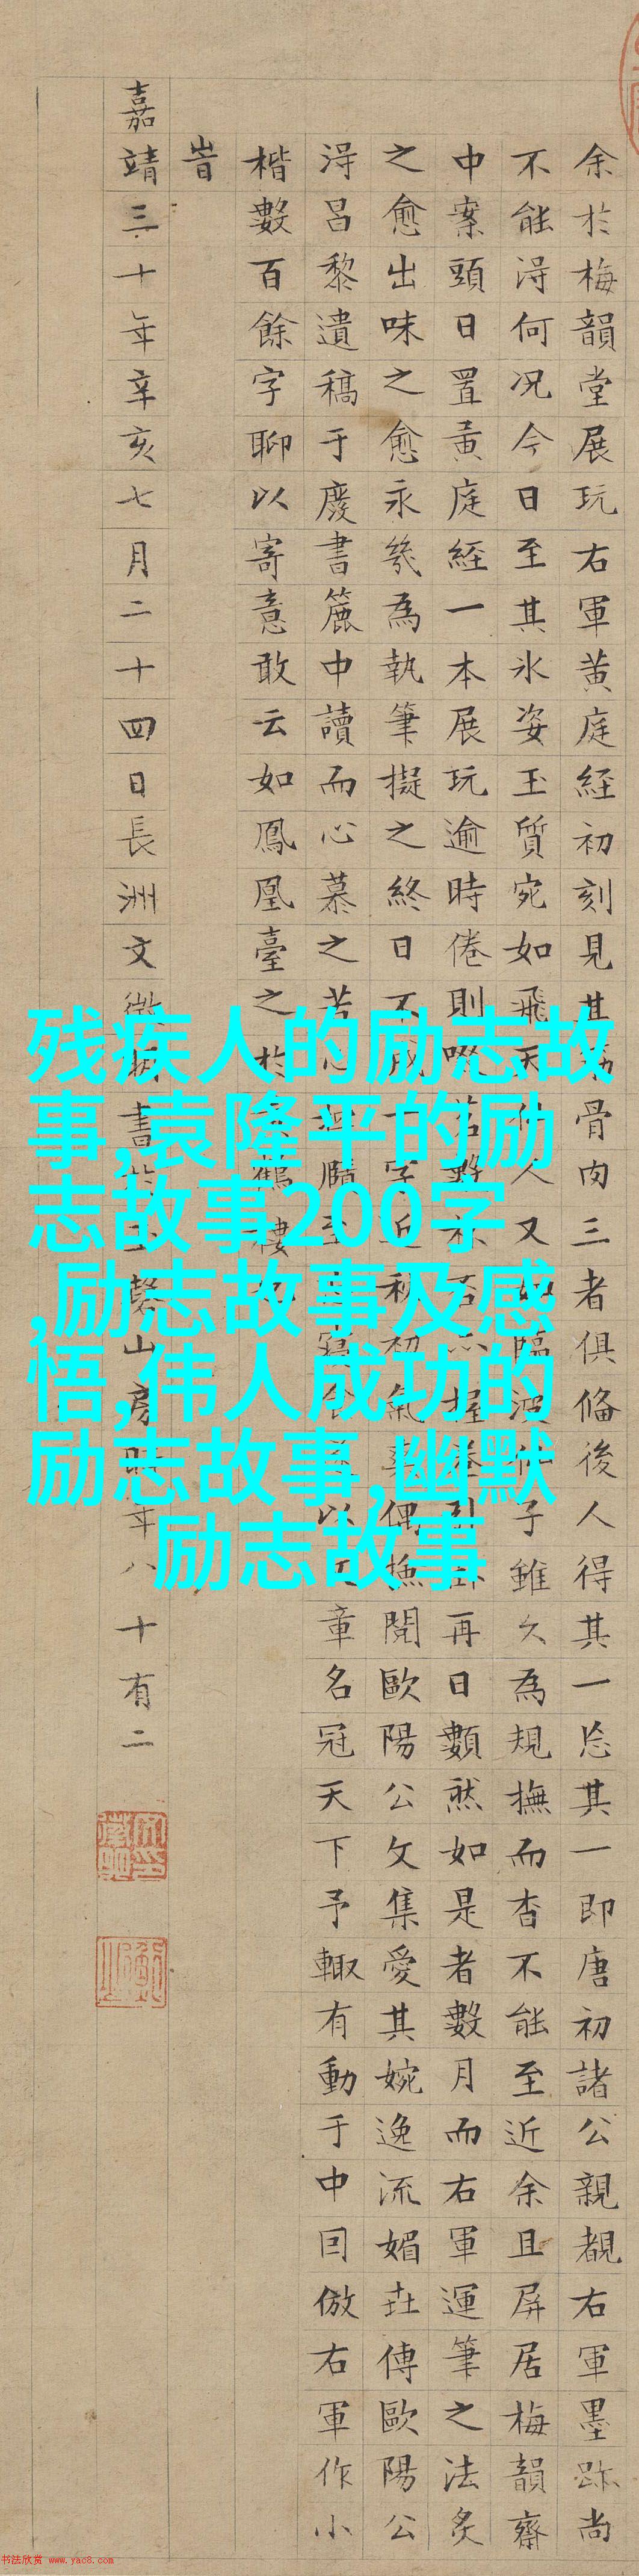 余於梅韻堂展玩右軍黄庭經初刻見其骨肉三者俱俻後人得其一忘其一即唐初諸公親覩右軍墨跡尚
不能淂何况今日至其氷姿玉質宛如飛天人又臨波子雖久為規撫而杳不能至近余且屏居梅韻齋
中案頭日置黄庭經一本展玩逾時倦則啜茗握卷再日數然如是者數月而右軍運筆之法炙
之愈出味之愈永㡬為執筆擬之終日不成一字近秋初氣爽偶撫閱歐陽公文集愛其婉逸流媚至傅歐陽公
淂昌黎遺稿于廢書簏中讀而心慕之苦心至忘寢食以章名冠天下予輙有動于中囙倣右軍作小
楷數百餘字聊以寄意敢云如鳳凰臺之於鶴樓
旹
嘉靖三十年辛亥七月二十四日長洲文徵書於磬山房時年八十有二
残疾人的励志故
事,袁隆平的励
志故事200字
,励志故事及感
悟,伟人成功的
励志故事,幽默
励志故事
书法欣赏 www.yac8.com